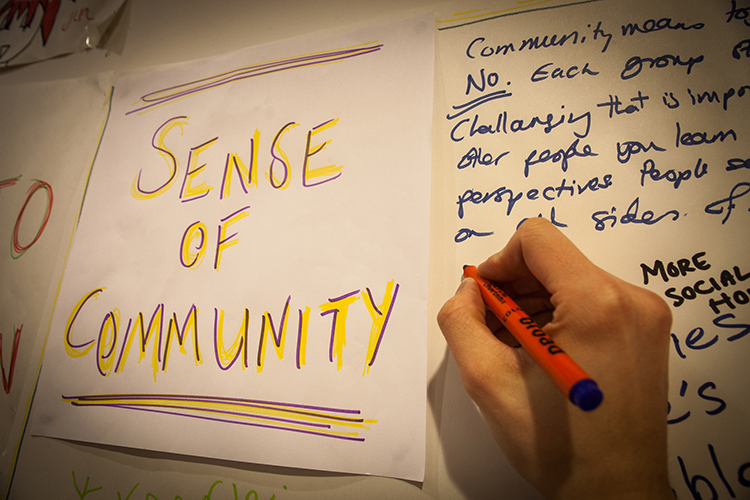 SENSE
OF
COMMUNITY
Community means to
No. Each group
Challanging that is impo
other people you learn
perspectives People s
on all sides.
MORE
SOCIAL
HO
TO
berol